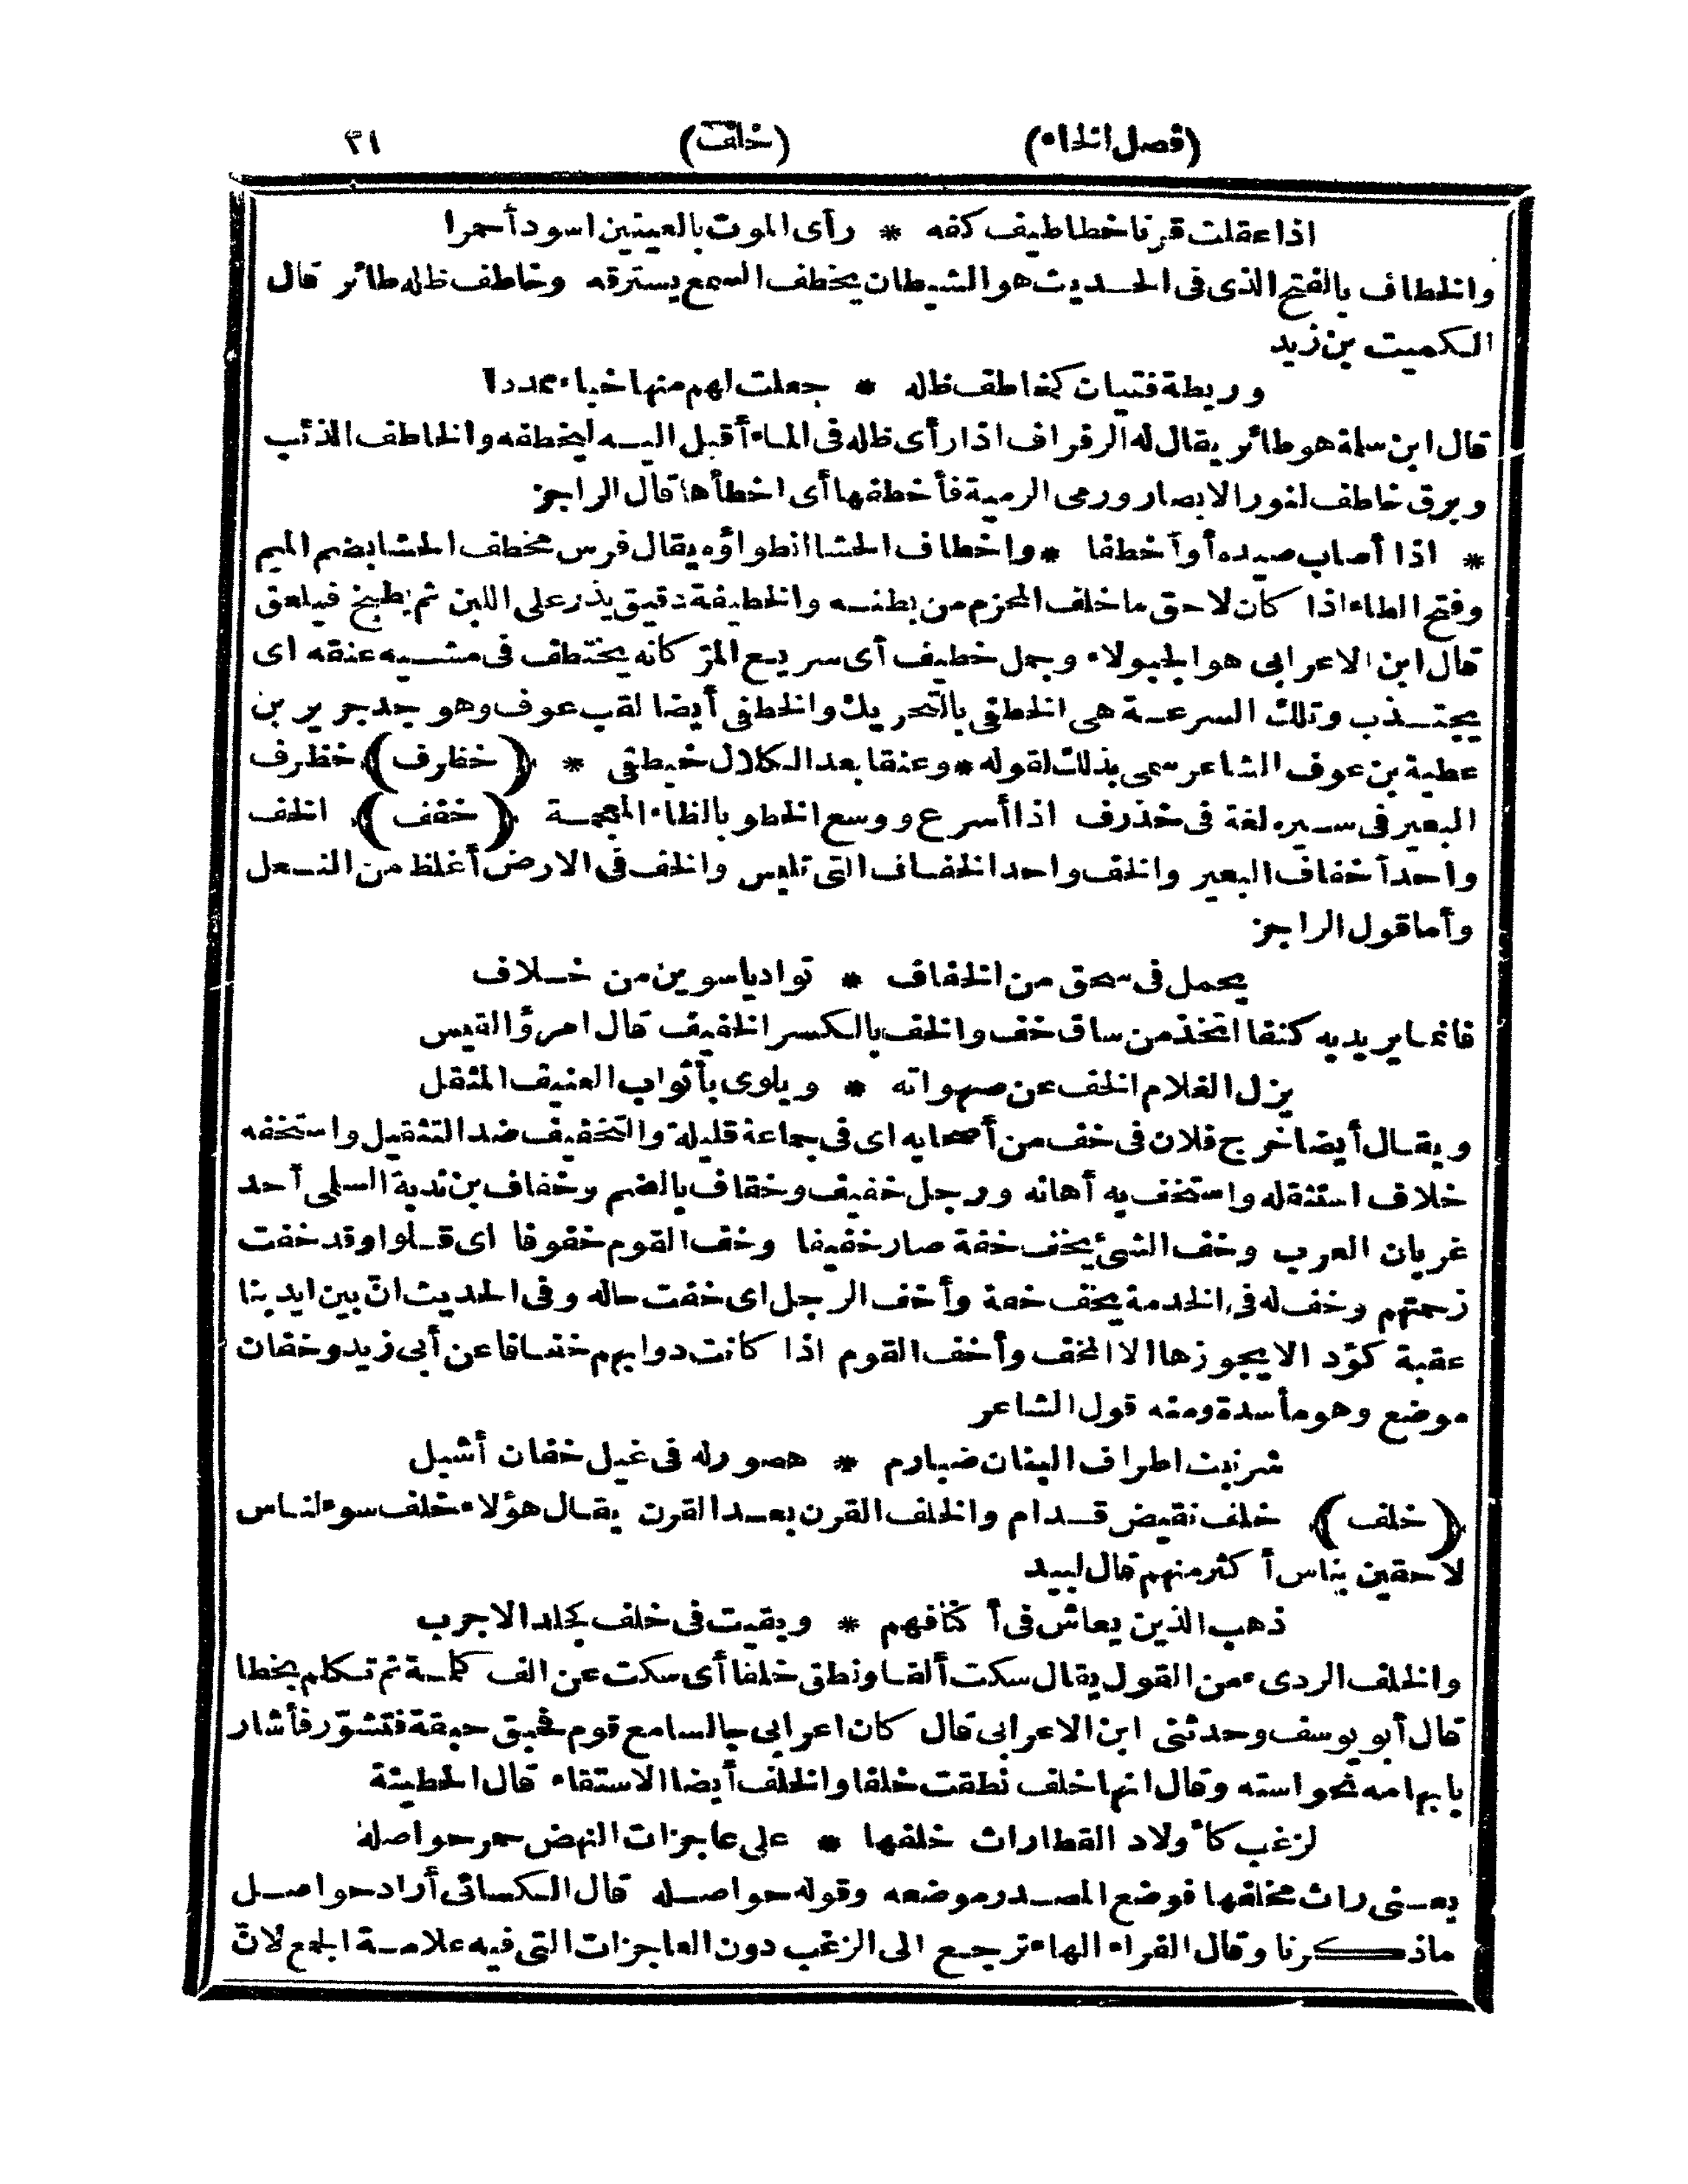 (فصل الخاء) (خلف) ٣١
اذا عقلت قرنا خطاطيف كفه * رأى الموت بالعينين اسود أحمرا
والخطاف بالفتح الذى فى الحديث هو الشيطان يخطف السمع يسترقه وخاطف ظله طائر قال
الكميت بن زيد
وريطة فتيان كخاطف ظله * جعلت لهم منها خباء ممددا
قال ابن سلمة هو طائر يقال له الرفراف اذا رأى ظله فى الماء أقبل اليه ليخطفه والخاطف الذئب
وبرق خاطف لنور الابصار ورمى الرمية فأخطفها أى اخطأها قال الراجز
* اذا أصاب صيده أو أخطفا * واخطاف الحشا انطواؤه يقال فرس مخطف الحشا بضم الميم
وفتح الطاء اذا كان لاحق ما خلف المحزم من بطنه والخطيفة دقيق يذر على اللبن ثم يطبخ فيلعق
قال ابن الاعرابى هو الجبولاء وجمل خطيف أى سريع المرّ كانه يختطف فى مشيه عنقه اى
يجتذب وتلك السرعة هى الخطفى بالتحريك والخطفى أيضا لقب عوف وهو جد جرير بن
عطية بن عوف الشاعر سمى بذلك لقوله * وعنقا بعد الكلال خيطفى * (خظرف) خظرف
البعير فى سيره لغة فى خذرف اذا أسرع ووسع الخطو بالظاء المعجمة (خفف) الخف
واحد أخفاف البعير والخف واحد الخفاف التى تلبس والخف فى الارض أغلظ من النعل
وأما قول الراجز
يحمل فى سحق من الخفاف * تواديا سوين من خلاف
فانما يريد به كنفا اتخذ من ساق خف والخف بالكسر الخفيف قال امرؤ القيس
يزل الغلام الخف عن صهواته * ويلوى بأثواب العنيف المثقل
ويقال أيضا خرج فلان فى خف من أصحابه اى فى جماعة قليلة والتخفيف ضد التثقيل واستخفه
خلاف استثقله واستخف به أهانه ورجل خفيف وخفاف بالضم وخفاف بن ندبة السلمى أحد
غربان العرب وخف الشئ يخف خفة صار خفيفا وخف القوم خفوفا اى قلوا وقد خفت
زحمتهم وخف له فى الخدمة يخف خفة وأخف الرجل اى خفت حاله وفى الحديث انّ بين ايدينا
عقبة كؤدا لا يجوزها الا المخف وأخف القوم اذا كانت دوابهم خفافا عن أبى زيد وخفان
موضع وهو مأسدة ومنه قول الشاعر
شرنبث اطراف البنان ضبارم * هصور له فى غيل خفان أشبل
(خلف) خلف نقيض قدام والخلف القرن بعد القرن يقال هؤلاء خلف سوء لناس
لاحقين بناس أكثر منهم قال لبيد
ذهب الذين يعاش فى أكنافهم * وبقيت فى خلف كجلد الاجرب
والخلف الردىء من القول يقال سكت ألفا ونطق خلفا أى سكت عن الف كلمة ثم تكلم بخطا
قال أبو يوسف وحدثنى ابن الاعرابى قال كان اعرابى جالسا مع قوم فحبق حبقة فتشوّر فأشار
بابهامه نحو استه وقال انها خلف نطقت خلفا والخلف أيضا الاستقاء قال الحطيئة
لزغب كأولاد القطا راث خلفها * على عاجزات النهض حمر حواصله
يعنى راث مخلفها فوضع المصدر موضعه وقوله حواصله قال الكسائى أراد حواصل
ماذكرنا وقال الفراء الهاء ترجع الى الزغب دون العاجزات التى فيه علامة الجمع لانّ